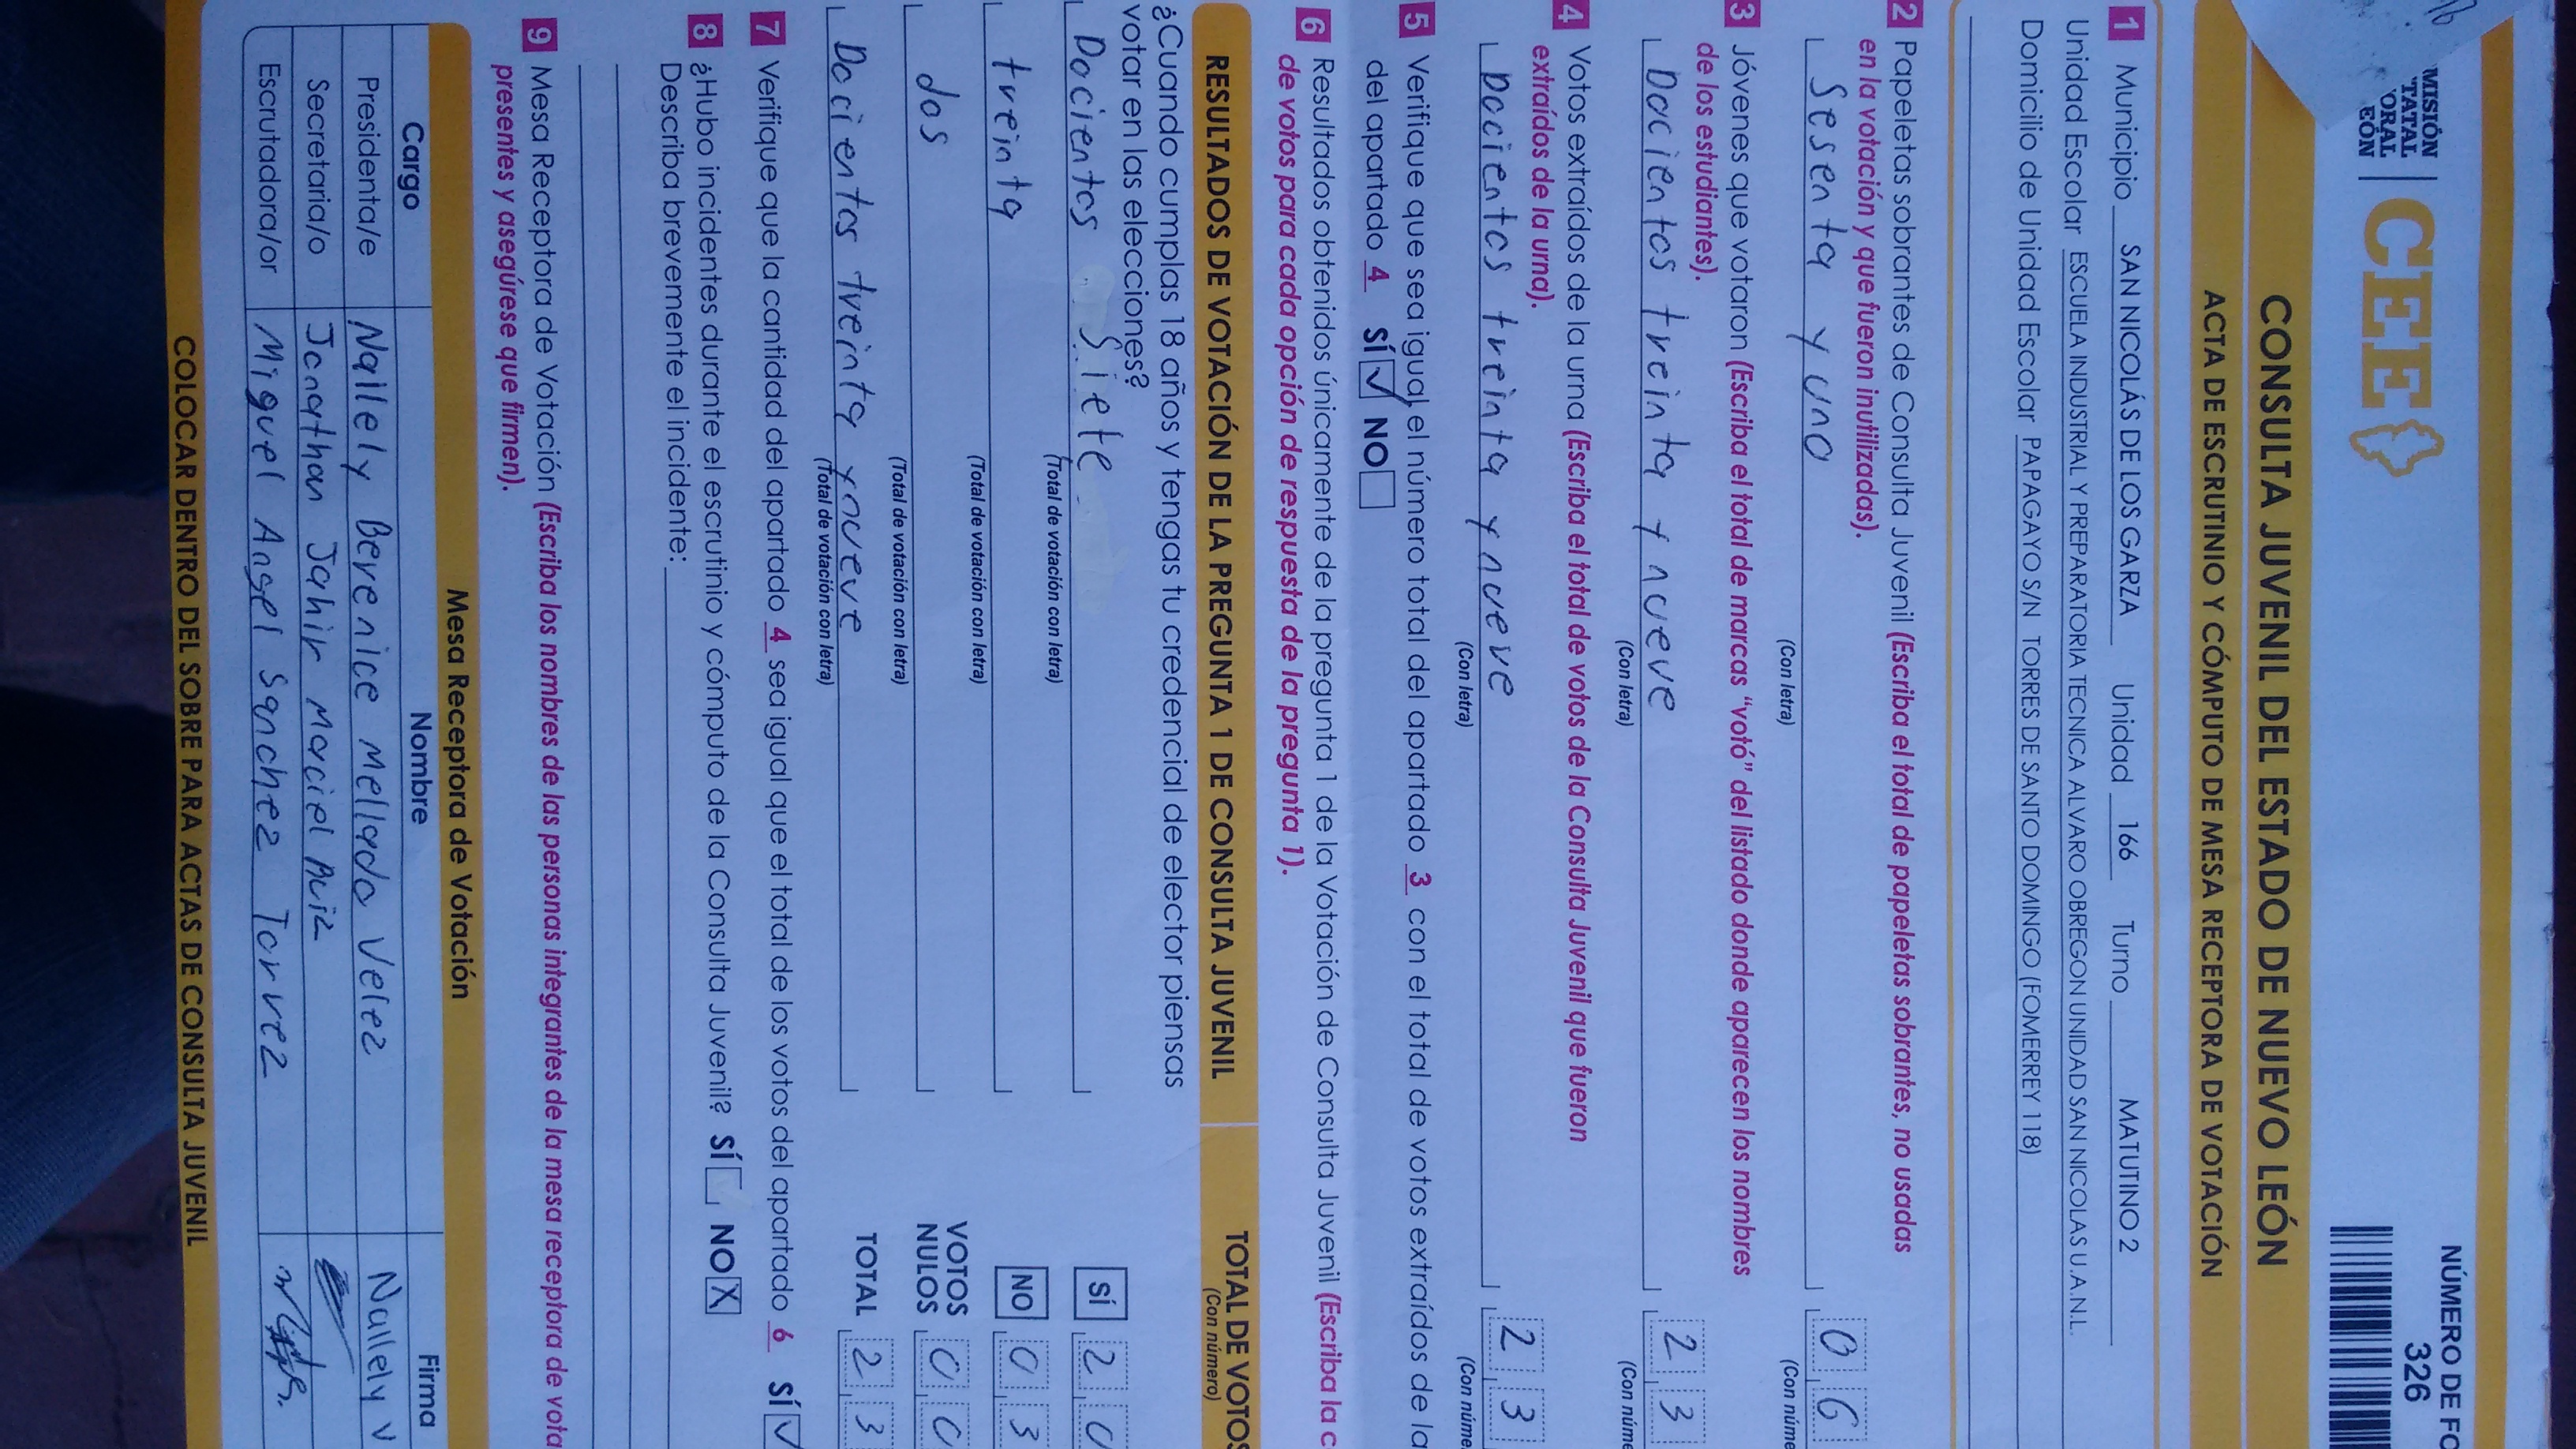 MISIÓN
TATAL
ORAL
EÓN
CEE
NÚMERO DE FO
326
CONSULTA JUVENIL DEL ESTADO DE NUEVO LEÓN
ACTA DE ESCRUTINIO Y CÓMPUTO DE MESA RECEPTORA DE VOTACIÓN
1 Municipio SAN NICOLÁS DE LOS GARZA Unidad 166 Turno MATUTINO 2
Unidad Escolar ESCUELA INDUSTRIAL Y PREPARATORIA TECNICA ALVARO OBREGON UNIDAD SAN NICOLAS U.A.N.L.
Domicilio de Unidad Escolar PAPAGAYO S/N TORRES DE SANTO DOMINGO (FOMERREY 118)
2 Papeletas sobrantes de Consulta Juvenil (Escriba el total de papeletas sobrantes, no usadas
en la votación y que fueron inutilizadas).
Sesenta y uno 0 6
(Con letra) (Con núme
3 Jóvenes que votaron (Escriba el total de marcas "votó" del listado donde aparecen los nombres
de los estudiantes).
Docientos treinta y nueve 2 3
(Con letra) (Con núme
4 Votos extraídos de la urna (Escriba el total de votos de la Consulta Juvenil que fueron
extraídos de la urna).
Docientos treinta y nueve 2 3
(Con letra) (Con núme
5 Verifique que sea igual el número total del apartado 3 con el total de votos extraídos de la
del apartado 4 SÍ ✓ NO
6 Resultados obtenidos únicamente de la pregunta 1 de la Votación de Consulta Juvenil (Escriba la c
de votos para cada opción de respuesta de la pregunta 1).
RESULTADOS DE VOTACIÓN DE LA PREGUNTA 1 DE CONSULTA JUVENIL TOTAL DE VOTOS
(Con número)
¿Cuando cumplas 18 años y tengas tu credencial de elector piensas
votar en las elecciones?
Docientos Siete SÍ 2 0
(Total de votación con letra)
treinta NO 0 3
(Total de votación con letra)
dos VOTOS NULOS 0 0
(Total de votación con letra)
Docientos treinta y nueve TOTAL 2 3
(Total de votación con letra)
7 Verifique que la cantidad del apartado 4 sea igual que el total de los votos del apartado 6 SÍ ✓
8 ¿Hubo incidentes durante el escrutinio y cómputo de la Consulta Juvenil? SÍ NO X
Describa brevemente el incidente:
9 Mesa Receptora de Votación (Escriba los nombres de las personas integrantes de la mesa receptora de vota
presentes y asegúrese que firmen).
Mesa Receptora de Votación
Cargo Nombre Firma
Presidenta/e Nallely Berenice Mellado Velez Nallely V
Secretaria/o Jonathan Jahir Maciel Ruiz
Escrutadora/or Miguel Angel Sanchez Torrez
COLOCAR DENTRO DEL SOBRE PARA ACTAS DE CONSULTA JUVENIL